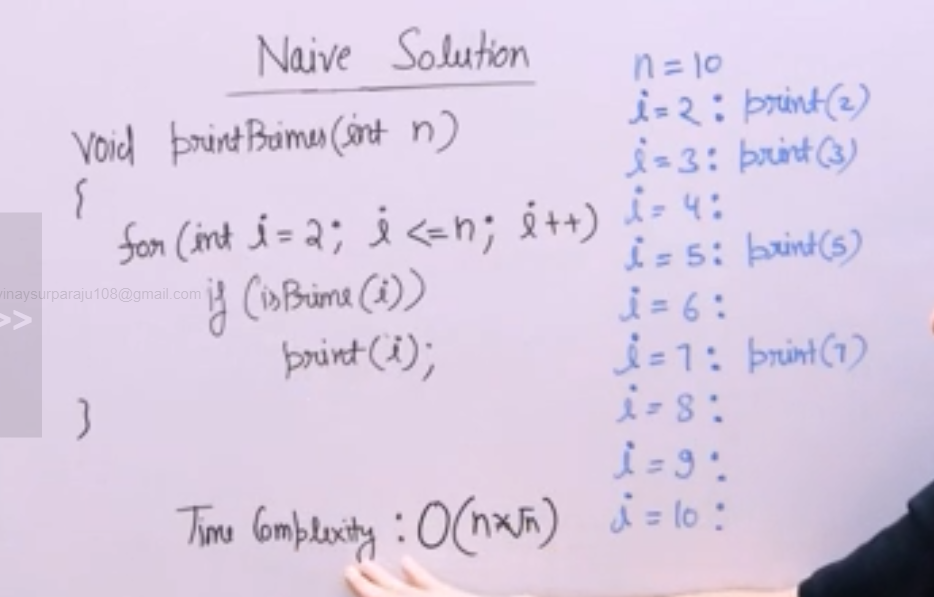 Naive Solution
void printPrimes(int n)
{
for (int i = 2; i <= n; i++)
if (isPrime(i))
print(i);
}
Time Complexity : O(n×√n)
n = 10
i = 2 : print(2)
i = 3 : print(3)
i = 4 :
i = 5 : print(5)
i = 6 :
i = 7 : print(7)
i = 8 :
i = 9 :
i = 10 :
vinaysurparaju108@gmail.com
>>